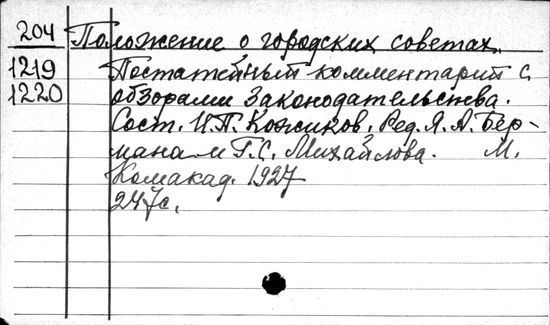 204 Положение о городских советах.
1219 Постатейный комментарий с
1220 обзорами законодательства.
Сост. И.П. Кожиков. Ред. Я.А. Бер-
мана и Г.С. Михайлова. М.
Комакад. 1927
247с.